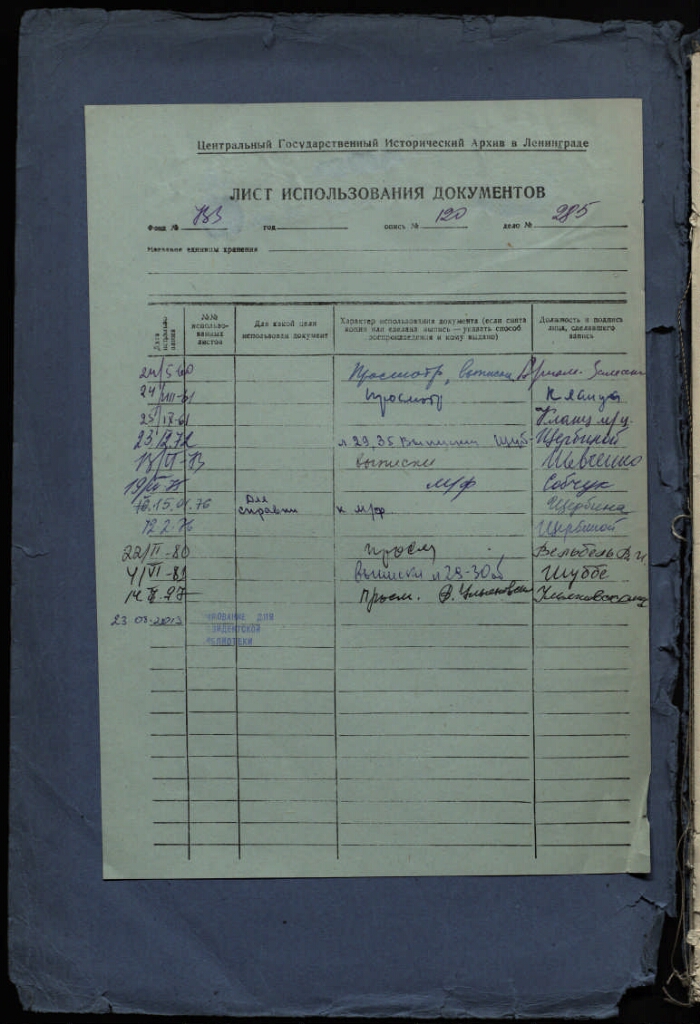 Центральный Государственный Исторический Архив в Ленинграде
ЛИСТ ИСПОЛЬЗОВАНИЯ ДОКУМЕНТОВ
Фонд № 733 год опись № 120 дело № 285
Название единицы хранения
Дата использования
№№ использованных листов
Для какой цели использован документ
Характер использования документа (если снята копия или сделана выпись — указать способ воспроизведения и кому выдана)
Должность и подпись лица, сделавшего запись
Просмотр, выписки
24/VIII-61 просмотр
25/IX-61
23.IX.72 л 29,35 Щербиной
выписки Шевченко
м/ф Собчук
15.01.76 Для справки к м/ф Щербина
12.2.76 Щербиной
22/II-80 просм
4/VI-81 выписки л 29-30 Шуббе
просм.
23 03.2013